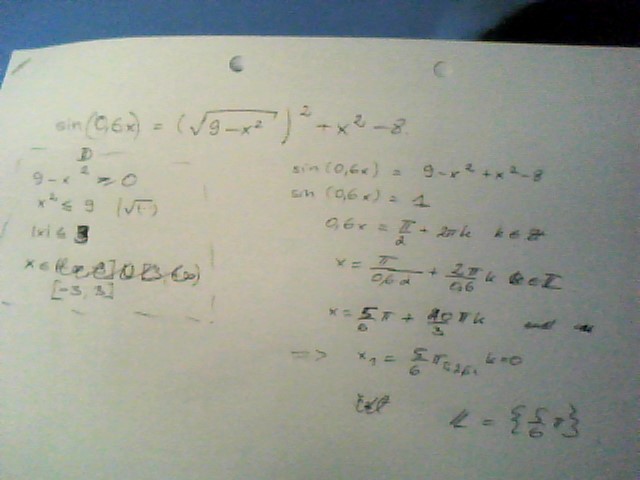 sin(0,6x) = (√9-x²)² + x² - 8
D
9 - x² ≥ 0
x² ≤ 9 (√(·))
|x| ≤ 3
[-3, 3]
sin(0,6x) = 9-x²+x²-8
sin(0,6x) = 1
0,6x = π/2 + 2πk k∈Z
x = π/0,6·2 + 2π/0,6 k
x = 5/6 π + 10/3 πk
=> x₁ = 5/6 π k=0
= {5/6 π}